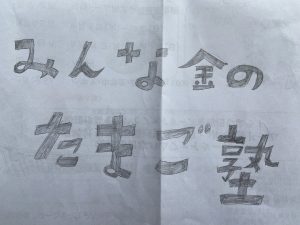 みんな金の
たまご塾